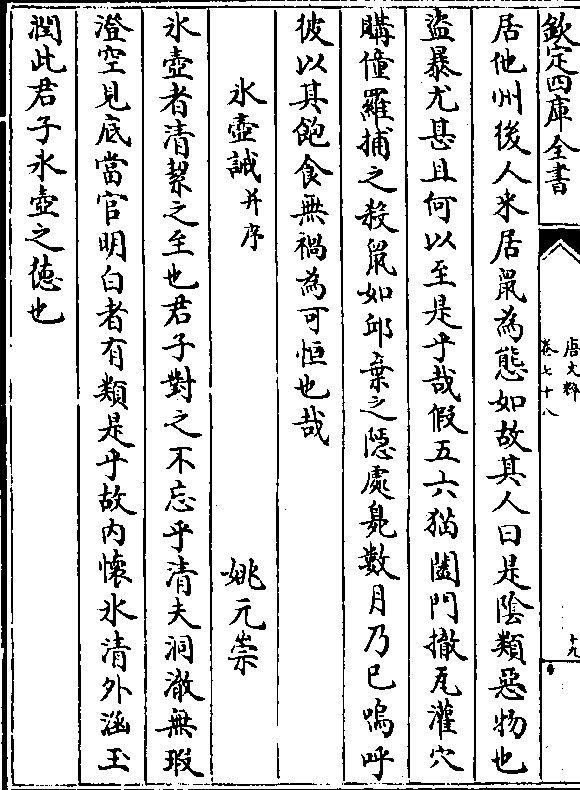 欽定四庫全書
唐文粹
卷七十八
十九
居他州後人来居䑕為態如故其人曰是陰類惡物也
盜暴尤甚且何以至是乎哉假五六猫闔門撤瓦灌穴
購僮羅捕之殺䑕如邱棄之隱處臰數月乃已嗚呼
彼以其飽食無禍為可恒也哉
氷壺誡并序
姚元崇
氷壺者清絜之至也君子對之不忘乎清夫洞澈無瑕
澄空見底當官明白者有類是乎故内懷氷清外涵玉
潤此君子氷壺之德也